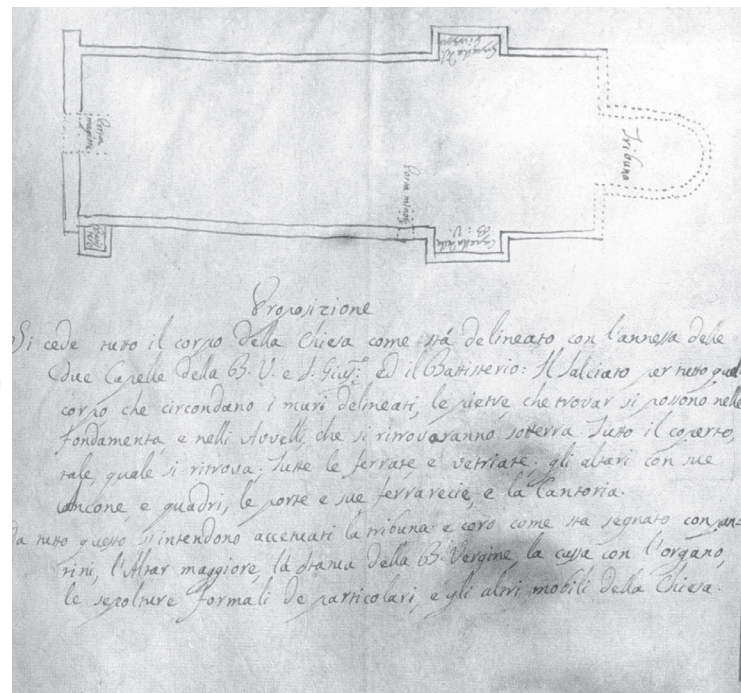 Capella del
Porta
maggiore
Tribuna
Porta minore
Capella della
B: V.
Proposizione
Si cede tutto il corpo della Chiesa come stá delineato con l'annessa delle
due Capelle della B. V. e S. Giuse ed il Battisterio: Il salciato per tutto quel
corpo che circondano i muri delineati, le pietre che trovar si possono nelle
fondamenta, e nelli Avelli, che si ritrovaranno sotterra. Tutto il coperto,
tale, quale si ritrova. Tutte le ferrate, e vetriate. gli altari con sue
ancone, e quadri, le porte e sue ferrarecie, e la Cantoria.
Da tutto questo si intendono accettuari la tribuna e coro come sta segnato con pun-
tini, l'Altar maggiore, la statua della B. Vergine, la cassa con l'organo,
le sepolture formali de particolari, e gli altri mobili della Chiesa.